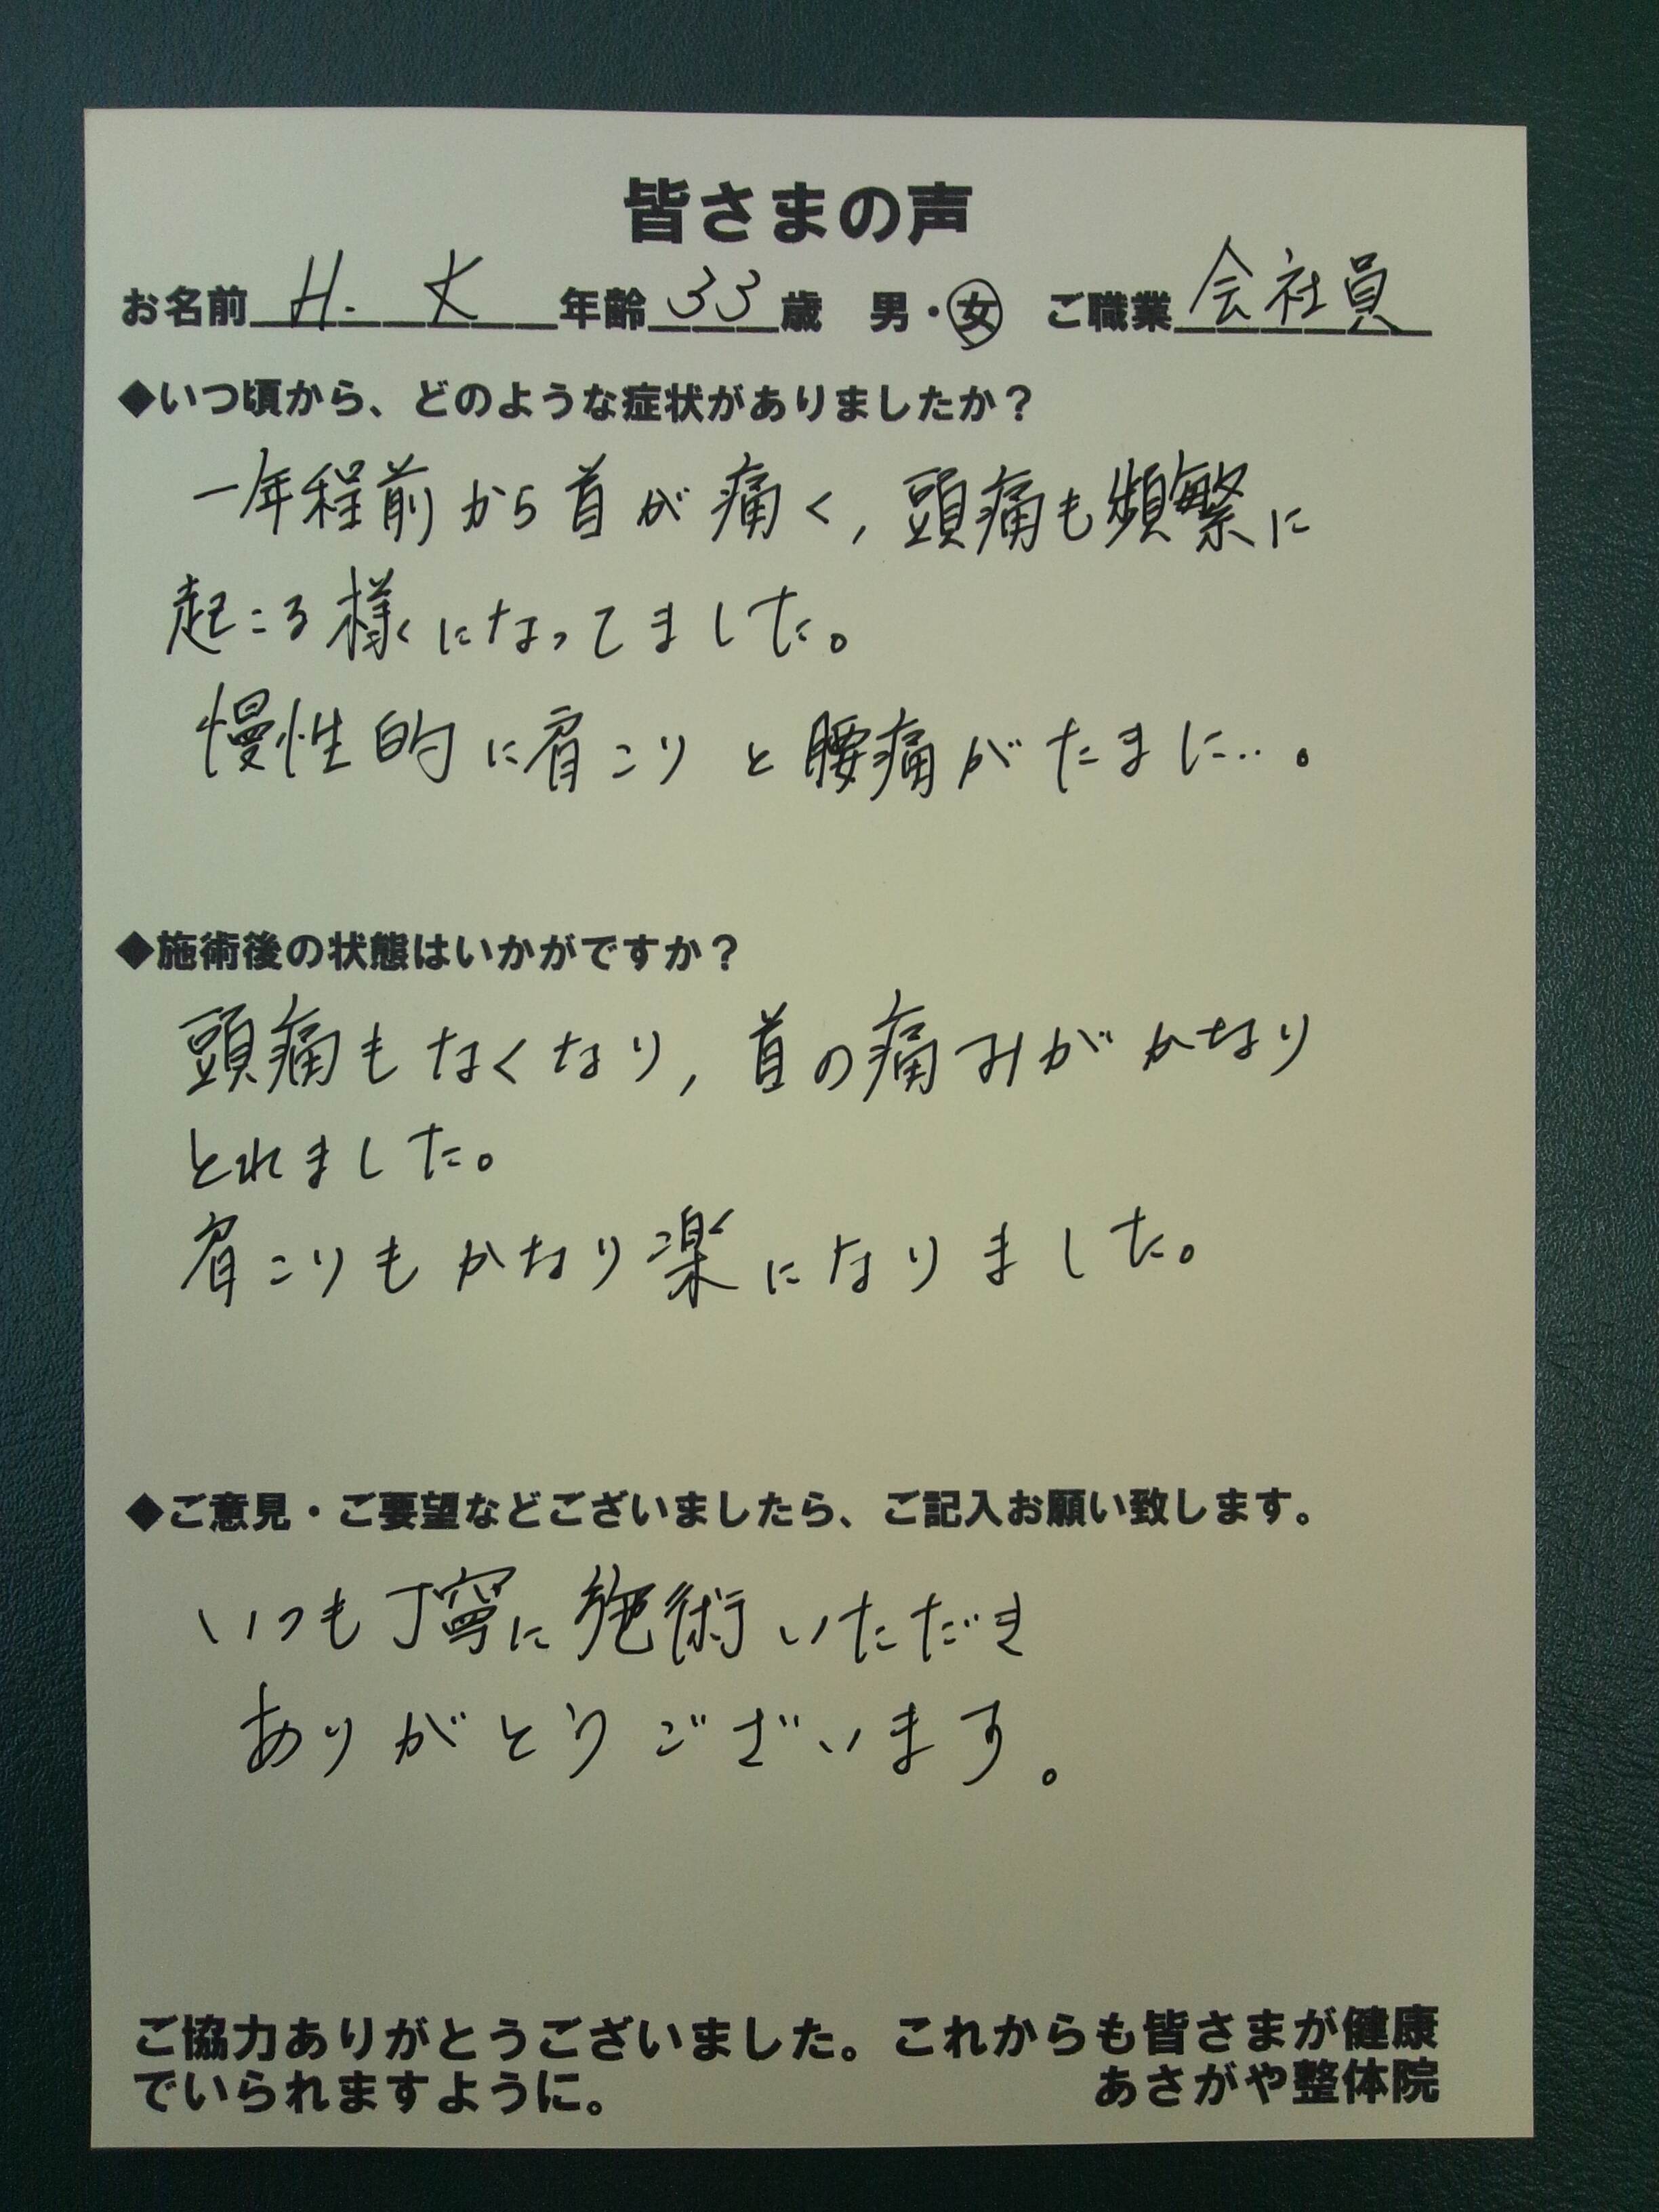 皆さまの声
お名前 H. K 年齢 33 歳 男・女 ご職業 会社員
◆いつ頃から、どのような症状がありましたか？
一年程前から首が痛く, 頭痛も頻繁に
起こる様になってました。
慢性的に肩こりと腰痛がたまに…。
◆施術後の状態はいかがですか？
頭痛もなくなり, 首の痛みがかなり
とれました。
肩こりもかなり楽になりました。
◆ご意見・ご要望などございましたら、ご記入お願い致します。
いつも丁寧に施術いただき
ありがとうございます。
ご協力ありがとうございました。これからも皆さまが健康
でいられますように。 あさがや整体院